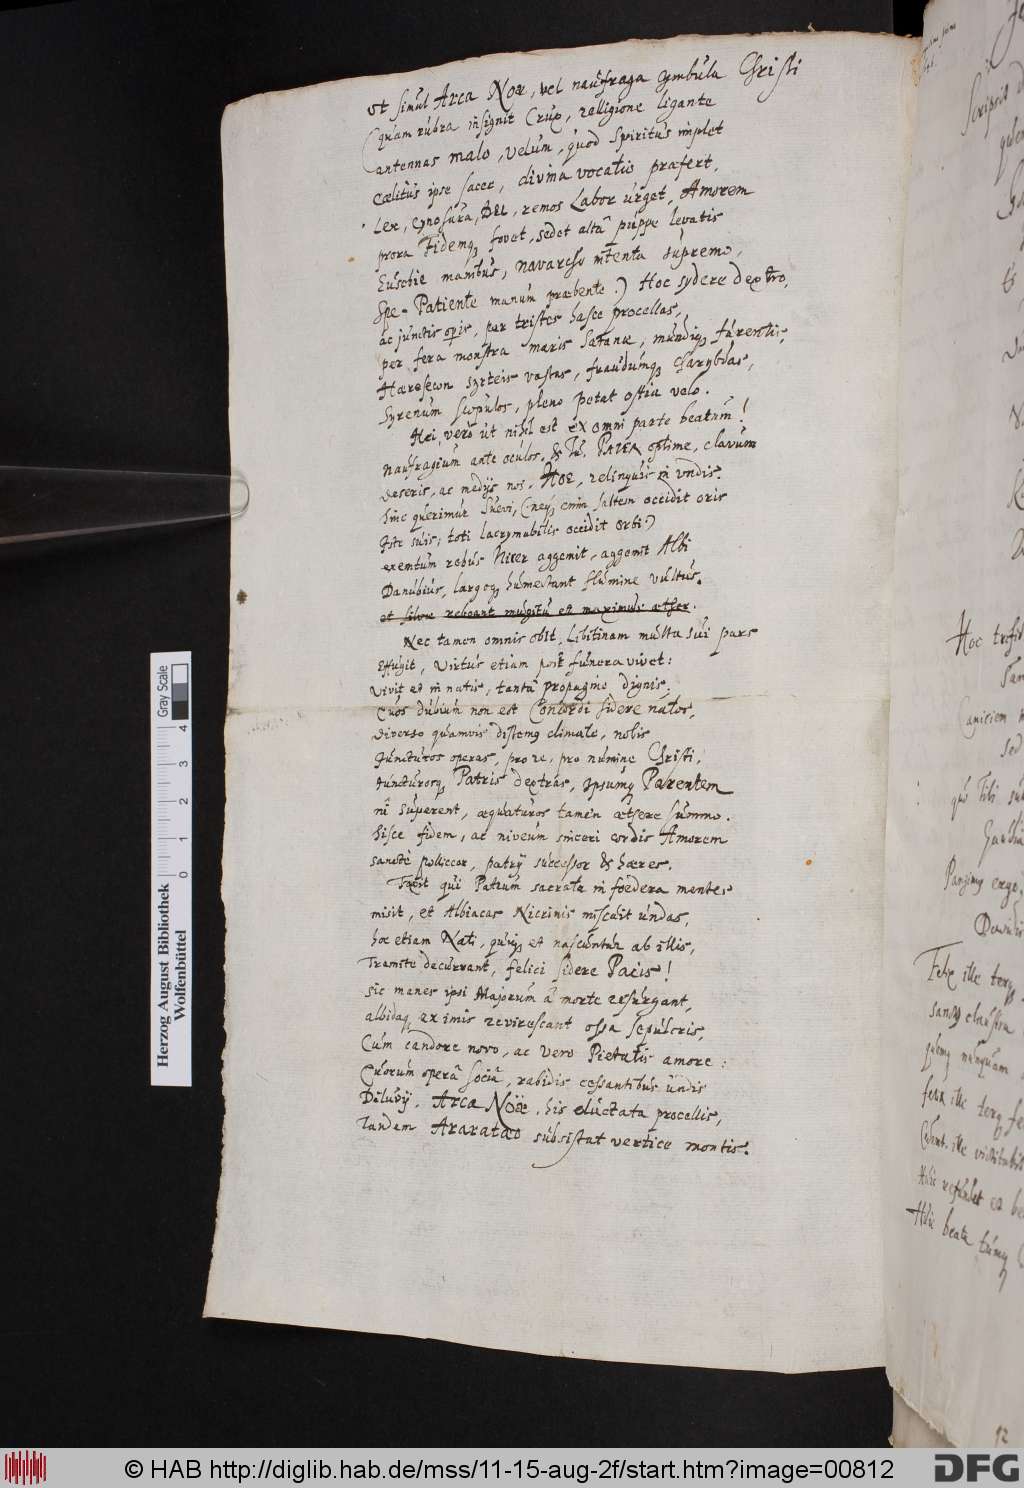 ut simul Arca Noæ, vel naufraga Cymbula Christi
(quam rubra insignit Crux, relligione ligante
antennas malo, velum, quod spiritus implet
cœlitus ipse sacer, divina vocatio præfert,
Lex, Cynosura, DEI, remos Labor urget, Amorem
prora Fidemq, fovet, sedet altâ puppe levatis
Eusebie manibus, navarcho intenta supremo,
Spe-Patiente manum præbente.) Hoc sydere dextro,
ac junctis opis, per tristes hasce procellas,
per fera monstra maris Satanæ, mundiq, furentis,
Hæreseωn syrteis vastas, fraudumq, Charybdas,
Syrenum scopulos, pleno petat ostia velo.
Hei, vero ut nihil est ex omni parte beatum!
Naufragium ante oculos. & Tu, optime, clavum
deseris, ac medijs nos, HOE, relinquis in undis.
Hinc querimur Suevi, (neq, enim saltem occidit oris
Iste suis; toti lacrymabilis occidit orbi.)
exemtum rebus Nicer aggemit, aggemit Albi
Danubius, largoq, humectant flumine vultus.
et silvæ reboant mugitu et maximus æther.
Nec tamen omnis obit, Libitinam multa sui pars
Effugit, Virtus etiam post funera vivet:
Vivit et in natis, tantâ propagine dignis,
Quos dubium non est Concordi sidere natos,
diverso quamvis distemq climate, nobis
Juncturos operas, pro re, pro numine Christi,
Juncturosq, Patris dextras, ipsumq Parentem
ni superent, æquaturos tamen æthere summo.
hisce fidem, ac niveum sinceri cordis Amorem
sanctè polliceor, patrij successor & hæres.
Faxit qui Patrum sacrata in fœdera mentes
misit, et Albiacas Nicrinis miscuit undas,
hoc etiam Nati, quiq, et nascentur ab illis,
Tramite decurrant, felici sidere Pacis!
sic manes ipsi Majorum â morte resurgant,
albidaq, ex imis revirescant ossa sepulcris,
Cum candore novo, ac vero Pietatis amore:
Quorum operâ sociâ, rabidis cessantibus undis
Diluvij, Arca Nöæ, his eluctata procellis,
Tandem Araratæo subsistat vertice montis.
Hoc
Felix ille terq
sanctæ
Huic beata
92
Herzog August Bibliothek
Wolfenbüttel
Gray Scale
0 1 2 3 4
© HAB http://diglib.hab.de/mss/11-15-aug-2f/start.htm?image=00812
DFG